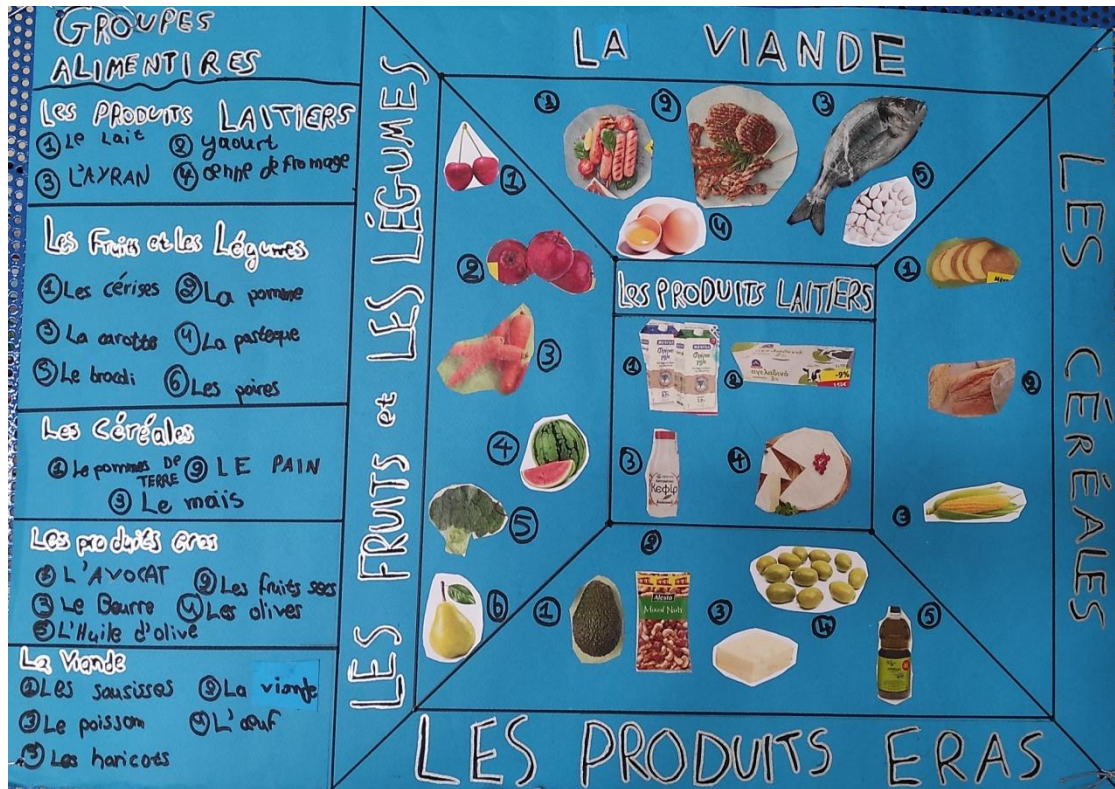 GROUPES
ALIMENTIRES
Les PRODUITS LAITIERS
① Le Lait ② yaourt
③ L'AYRAN ④ de fromage
Les Fruits et Les Légumes
① Les cérises ② La pomme
③ La carotte ④ La pasteque
⑤ Le brocli ⑥ Les poires
Les Céréales
① Le pommes DE TERRE ② LE PAIN
③ Le mais
Les produits eras
① L'AVOCAT ② Les fruits secs
③ Le Beurre ④ Les olives
⑤ L'Huile d'olive
La Viande
① Les sausisses ② La viande
③ Le poissom ④ L'œuf
⑤ Les haricots
LA VIANDE
① ② ③
④ ⑤
LES FRUITS et LES LÉGUMES
①
②
③
④
⑤
⑥
LES CÉRÉALES
①
②
③
Les PRODUITS LAITIERS
① ②
-9%
③ ④
Κεφίρ
LES PRODUITS ERAS
① ② ③ ④ ⑤
Alesto
Mixed Nuts